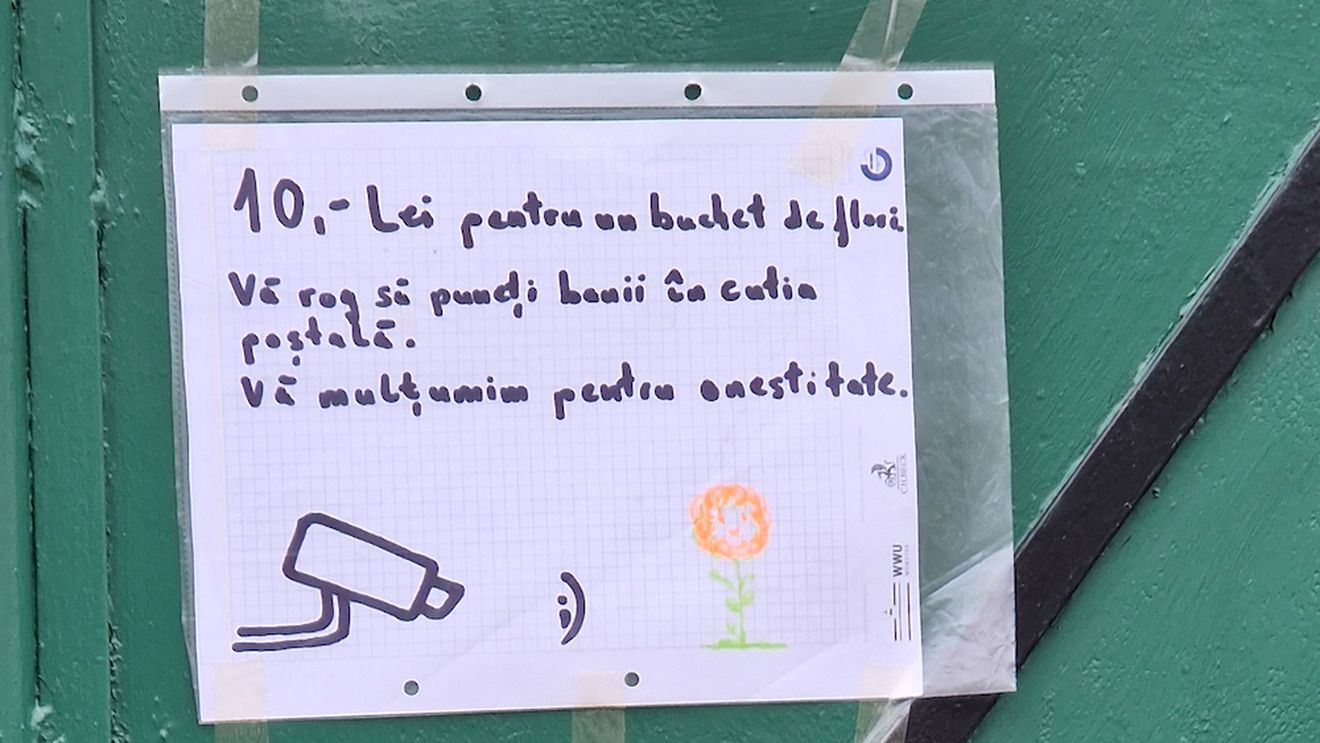 10,- Lei pentru un buchet de flori
Vă rog să punęți banii în cutia
poștală.
Vă mulțumim pentru onestitate.
;)
C.H.BECK
WWU